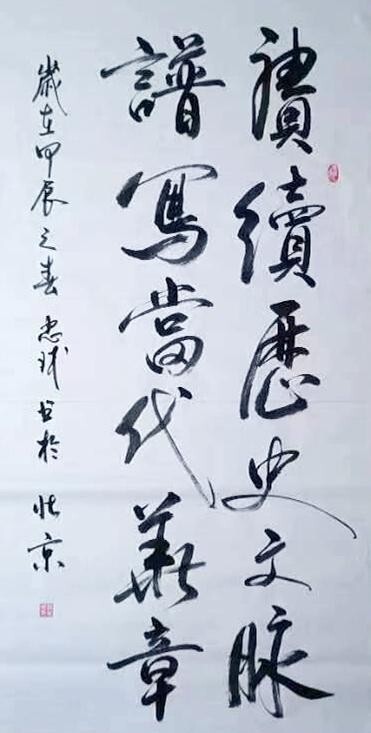 賡續歷史文脈
譜寫當代華章
歲在甲辰之春忠書於北京